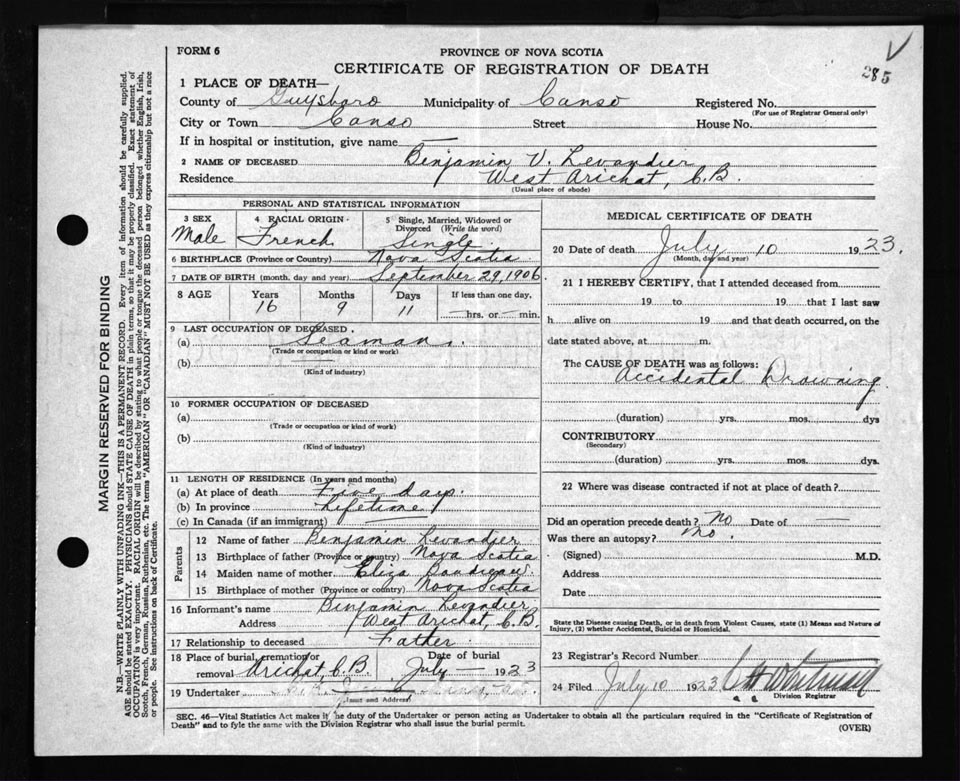 FORM 6
PROVINCE OF NOVA SCOTIA
285
CERTIFICATE OF REGISTRATION OF DEATH
1 PLACE OF DEATH—
County of Guysboro Municipality of Canso Registered No.
(For use of Registrar General only)
City or Town Canso Street House No.
If in hospital or institution, give name —
2 NAME OF DECEASED Benjamin V. Levandier
Residence West Arichat, C.B.
(Usual place of abode)
PERSONAL AND STATISTICAL INFORMATION
3 SEX Male
4 RACIAL ORIGIN French
5 Single, Married, Widowed or Divorced (Write the word) Single
6 BIRTHPLACE (Province or Country) Nova Scotia
7 DATE OF BIRTH (month, day and year) September 29, 1906
8 AGE Years 16 Months 9 Days 11 If less than one day, — hrs. or — min.
9 LAST OCCUPATION OF DECEASED
(a) Seaman
(Trade or occupation or kind or work)
(b)
(Kind of industry)
10 FORMER OCCUPATION OF DECEASED
(a)
(Trade or occupation or kind of work)
(b)
(Kind of industry)
11 LENGTH OF RESIDENCE (In years and months)
(a) At place of death Five days
(b) In province Lifetime
(c) In Canada (if an immigrant) —
Parents
12 Name of father Benjamin Levandier
13 Birthplace of father (Province or country) Nova Scotia
14 Maiden name of mother Eliza
15 Birthplace of mother (Province or country) Nova Scotia
16 Informant's name Benjamin Levandier
Address West Arichat, C.B.
17 Relationship to deceased Father
18 Place of burial, cremation or removal Arichat, C.B. Date of burial July — 1923
19 Undertaker
(Name and Address)
MEDICAL CERTIFICATE OF DEATH
20 Date of death July 10 1923
(Month, day and year)
21 I HEREBY CERTIFY, that I attended deceased from
19 to 19 that I last saw
h alive on 19 and that death occurred, on the
date stated above, at m.
The CAUSE OF DEATH was as follows:
Accidental Drowning
(duration) yrs. mos. dys
CONTRIBUTORY
(Secondary)
(duration) yrs. mos. dys.
22 Where was disease contracted if not at place of death?
Did an operation precede death? No Date of —
Was there an autopsy? No.
(Signed) M.D.
Address
Date
State the Disease causing Death, or in death from Violent Causes, state (1) Means and Nature of
Injury, (2) whether Accidental, Suicidal or Homicidal.
23 Registrar's Record Number
24 Filed July 10 1923
Division Registrar
SEC. 46—Vital Statistics Act makes it the duty of the Undertaker or person acting as Undertaker to obtain all the particulars required in the "Certificate of Registration of
Death" and to fyle the same with the Division Registrar who shall issue the burial permit.
(OVER)
MARGIN RESERVED FOR BINDING
N.B.—WRITE PLAINLY WITH UNFADING INK—THIS IS A PERMANENT RECORD. Every item of information should be carefully supplied.
AGE should be stated EXACTLY. PHYSICIANS should STATE CAUSE OF DEATH in plain terms, so that it may be properly classified. Exact statement of
OCCUPATION is very important. RACIAL ORIGIN will be described by stating to what people or tongue the deceased person belonged whether English, Irish,
Scotch, French, German, Russian, Ruthenian, etc. The terms "AMERICAN" OR "CANADIAN" MUST NOT BE USED as they express citizenship but not a race
or people. See instructions on back of Certificate.